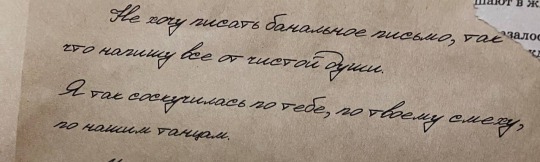 Не хочу писать банальное письмо, так
что напишу все от чистой души.
Я так соскучилась по тебе, по твоему смеху,
по нашим танцам.